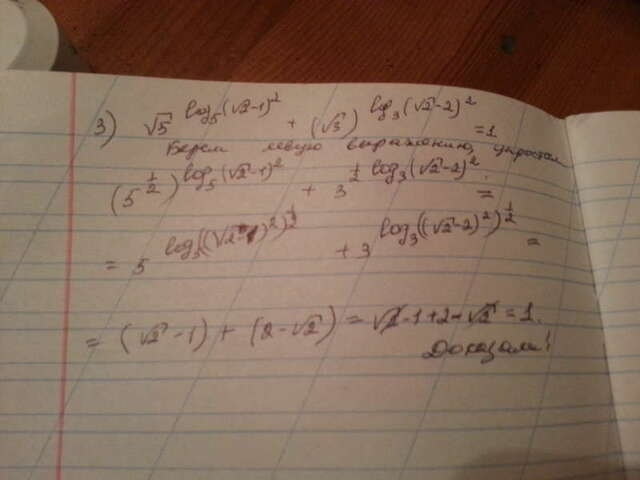 3) √5^(log₅(√2-1)²) + (√3)^(log₃(√2-2)²) = 1
Берем левую выражению, упростом
(5^(1/2))^(log₅(√2-1)²) + 3^(1/2 log₃(√2-2)²) =
= 5^(log₅((√2-1)²)^(1/2)) + 3^(log₃((√2-2)²)^(1/2)) =
= (√2-1) + (2-√2) = √2-1+2-√2 = 1.
Доказали!